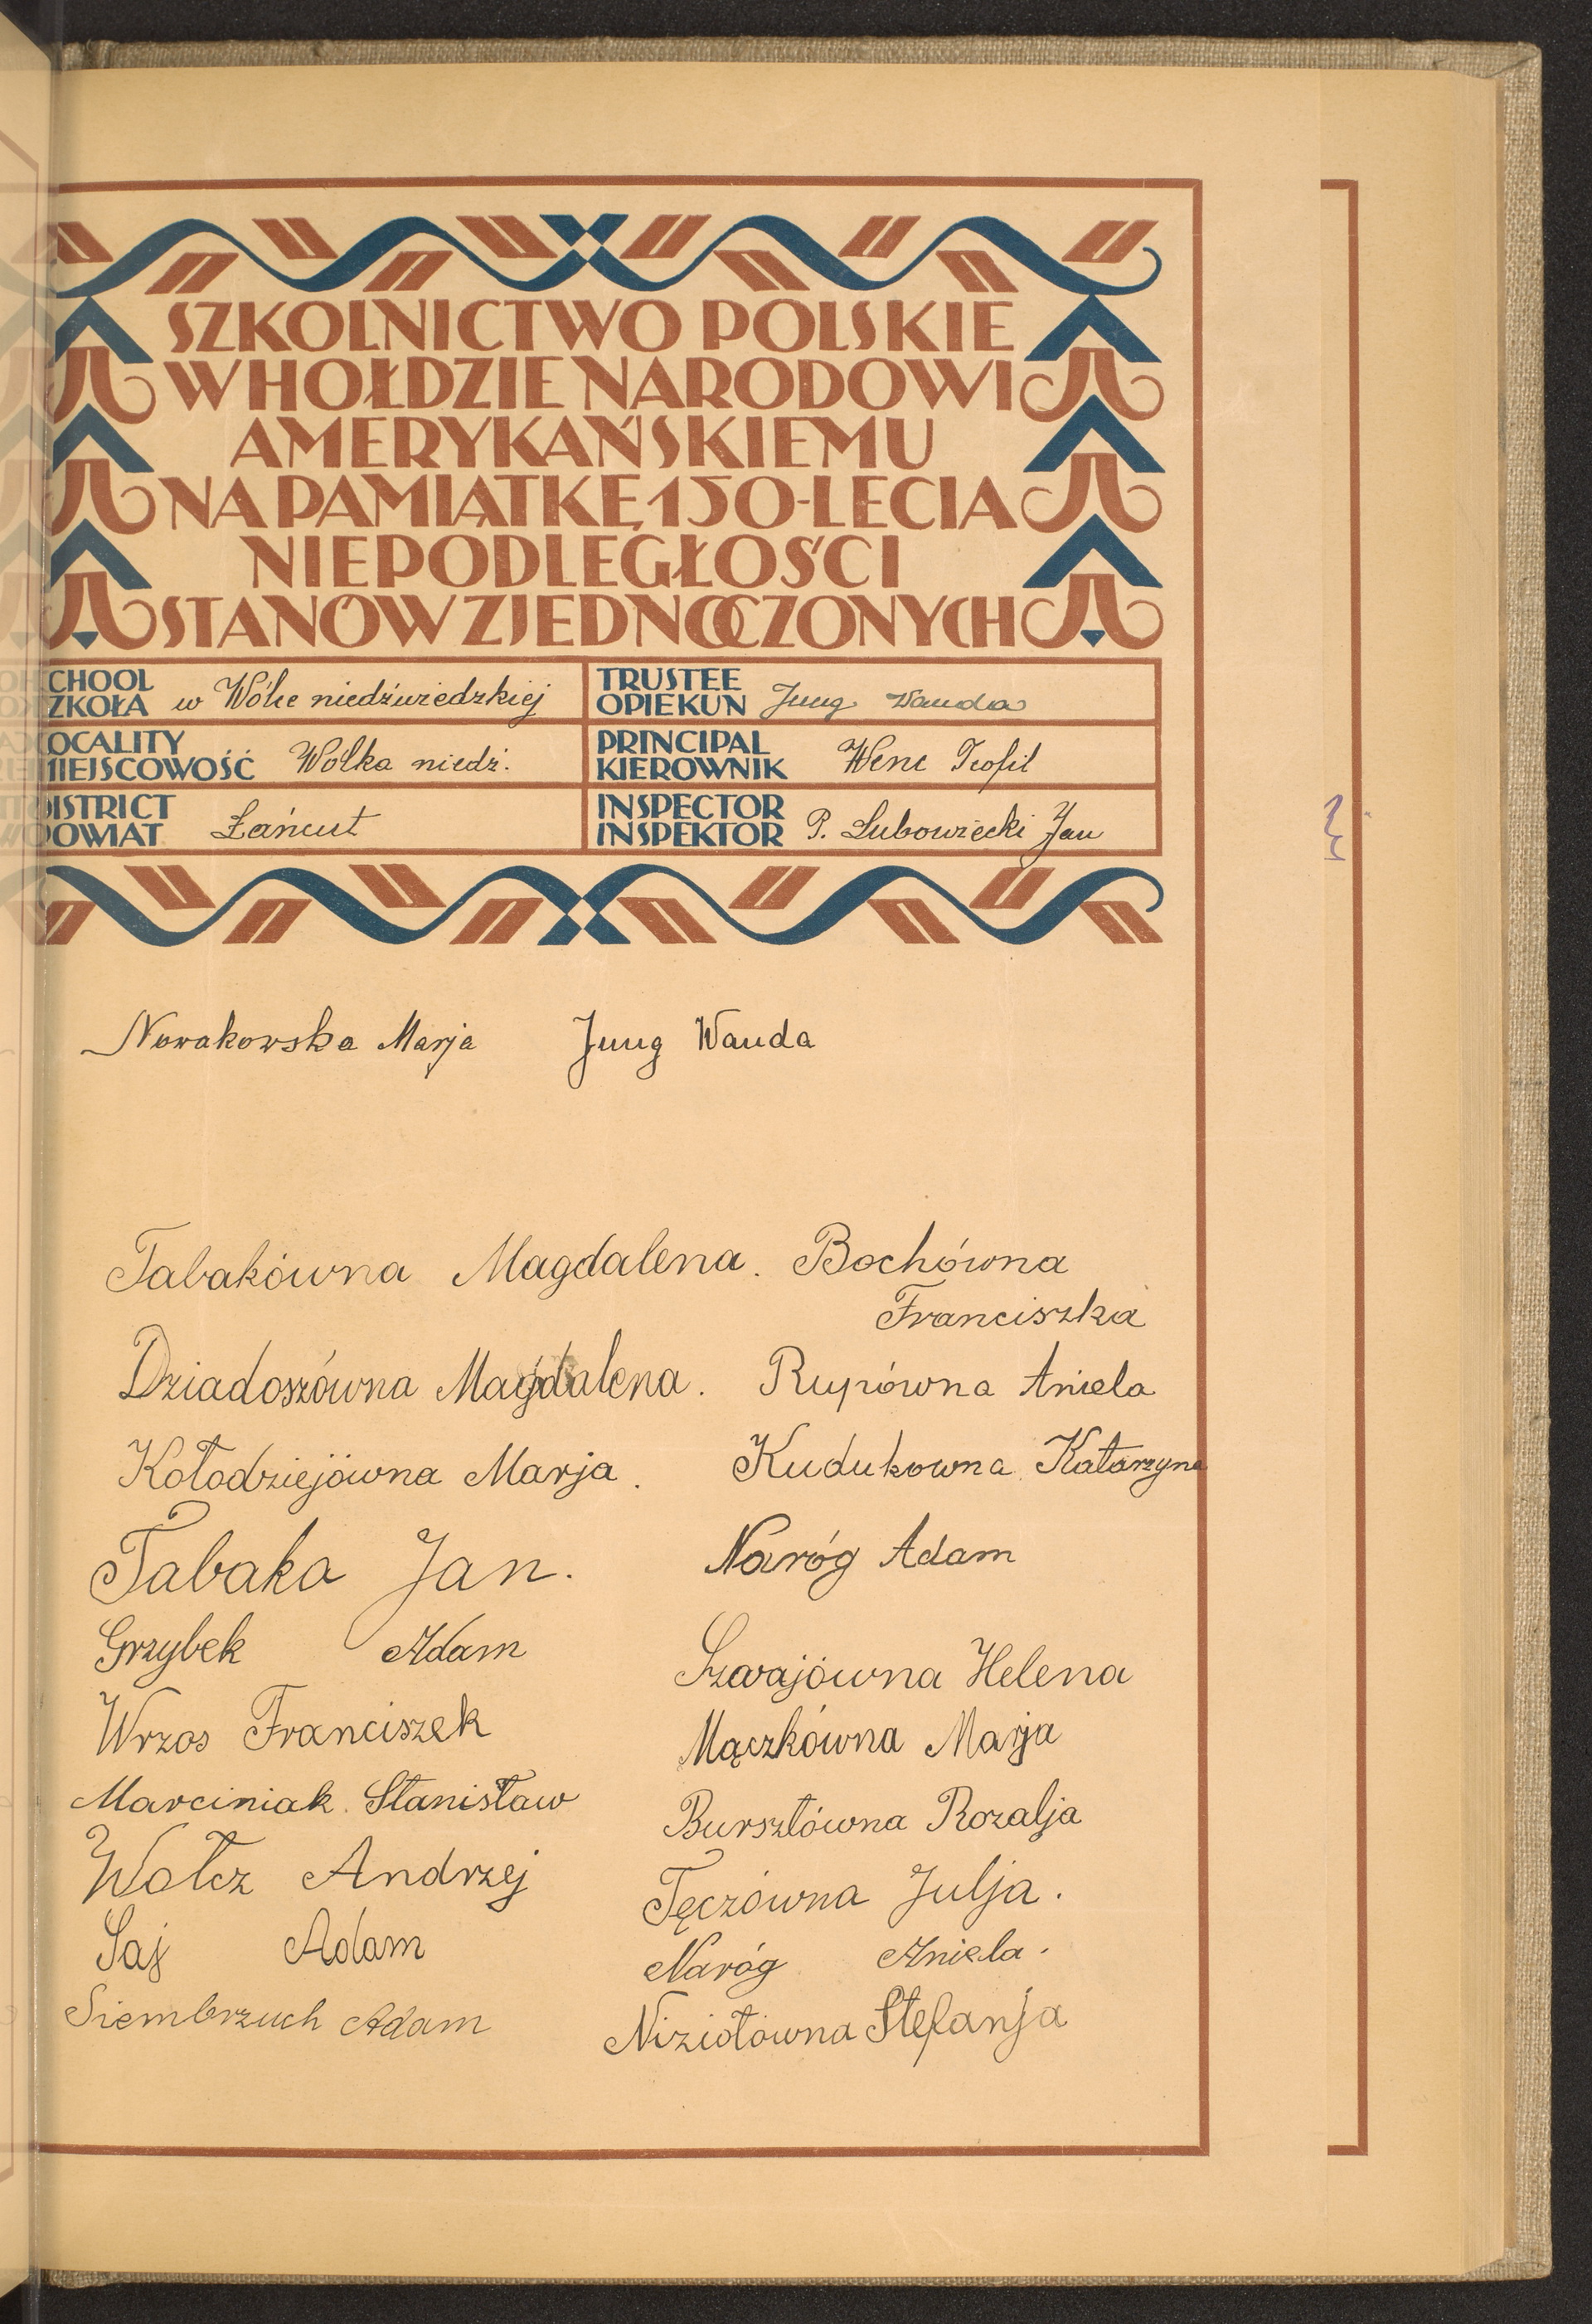 SZKOLNICTWO POLSKIE
W HOŁDZIE NARODOWI
AMERYKAŃSKIEMU
NA PAMIĄTKĘ 150-LECIA
NIEPODLEGŁOŚCI
STANÓW ZJEDNOCZONYCH
CHOOL
ZKOŁA w Wólce niedźwiedzkiej
TRUSTEE
OPIEKUN Jung Wanda
OCALITY
MIEJSCOWOŚĆ Wólka niedź.
PRINCIPAL
KIEROWNIK Wenc Teofil
DISTRICT
POWIAT Łańcut
INSPECTOR
INSPEKTOR P. Lubowiecki Jan
Nowakowska Marja Jung Wanda
Tabakówna Magdalena. Bochówna
Franciszka
Dziadoszówna Magdalena. Rupówna Aniela
Kołodziejówna Marja. Kudukowna Katarzyna
Tabaka Jan. Naróg Adam
Grzybek Adam Szwajówna Helena
Wrzos Franciszek Mączkówna Marja
Marciniak Stanisław Bursztówna Rozalja
Wołcz Andrzej Tęczówna Julja.
Saj Adam Naróg Aniela.
Siembrzuch Adam Niziołówna Stefanja